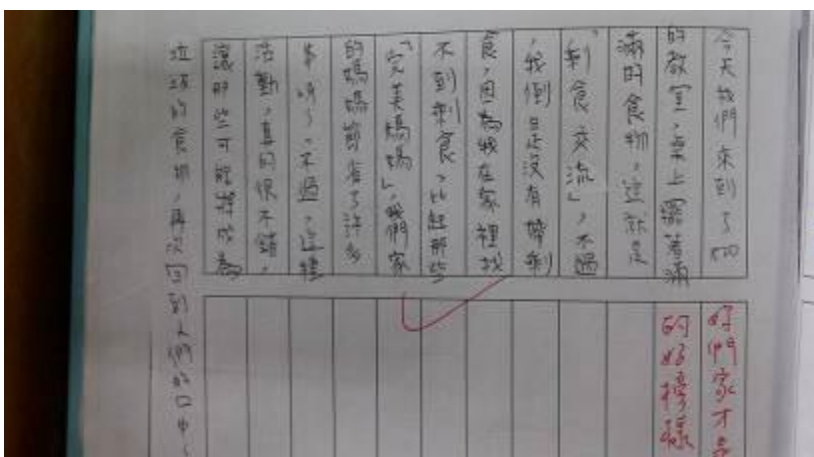 今天我們來到了如
的教室，桌上擺著滿
滿的食物，這就是
「剩食交流」，不過
，我倒是沒有帶剩
食，因為我在家裡找
不到剩食，比起那些
「完美媽媽」，我們家
的媽媽節省了許多
事呀！不過，這種
活動，真的很不錯，
讓那些可能將成為
垃圾的食物，再次回到人們的口中
你們家才是
的好榜樣